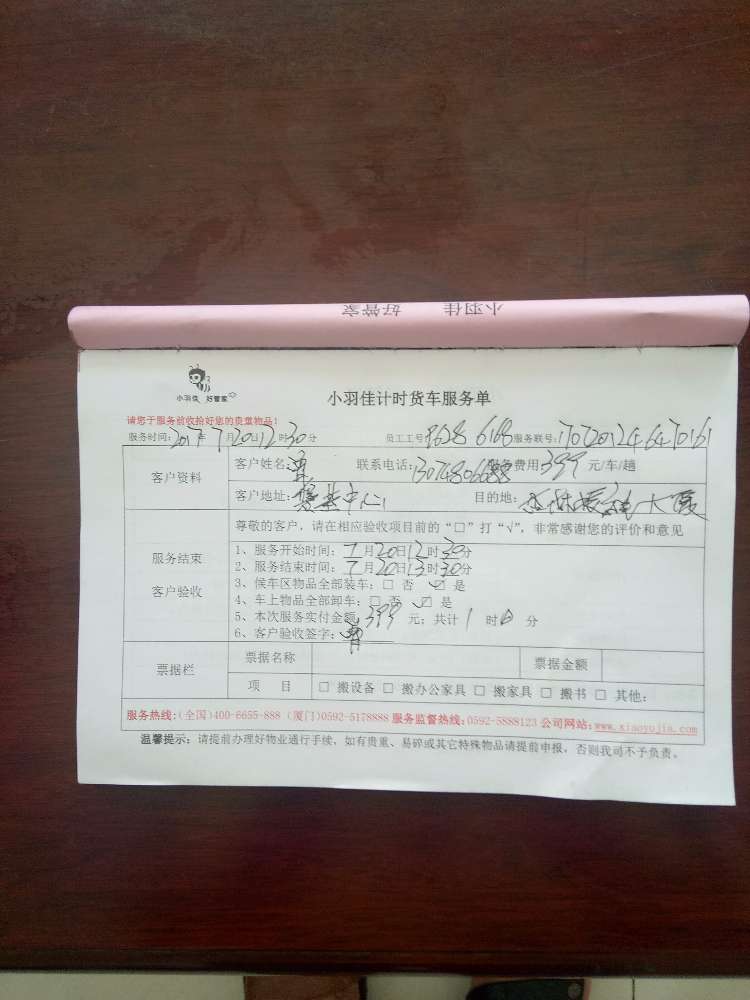 小羽佳 好管家
小羽佳 好管家
小羽佳计时货车服务单
请您于服务前收拾好您的贵重物品!
服务时间:2017年7月20日12时30分 员工工号: 服务联号:
客户资料
客户姓名: 联系电话: 服务费用399元/车/趟
客户地址: 中心 目的地: 大厦
尊敬的客户,请在相应验收项目前的“□”打“√”,非常感谢您的评价和意见
服务结束
客户验收
1、服务开始时间:7月20日12时30分
2、服务结束时间:7月20日13时30分
3、候车区物品全部装车:□ 否 ☑ 是
4、车上物品全部卸车:□ 否 ☑ 是
5、本次服务实付金额:399元;共计1时0分
6、客户验收签字:
票据栏
票据名称 票据金额
项 目 □ 搬设备 □ 搬办公家具 □ 搬家具 □ 搬书 □ 其他:
服务热线:(全国)400-6655-888 (厦门)0592-5178888 服务监督热线:0592-5888123 公司网站:www.xiaoyujia.com
温馨提示:请提前办理好物业通行手续,如有贵重、易碎或其它特殊物品请提前申报,否则我司不予负责。